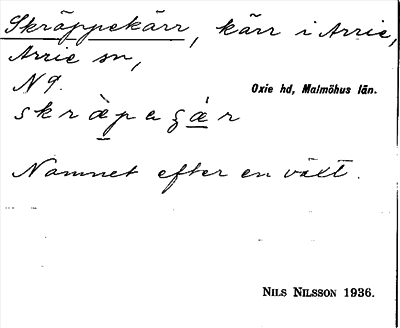 Skräppekärr, kärr i Arrie,
Arrie sn,
N 9.
Oxie hd, Malmöhus län.
skràpaʒár
Namnet efter en växt.
NILS NILSSON 1936.